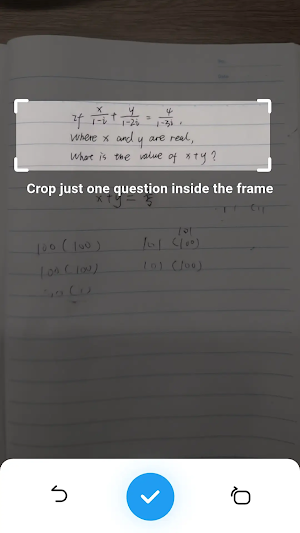 If x/(1-i) + y/(1-2i) = 4/(1-3i),
where x and y are real,
What is the value of x+y?
Crop just one question inside the frame
x+y =
100 (100)
101 (100)
100 (100)
101 (100)